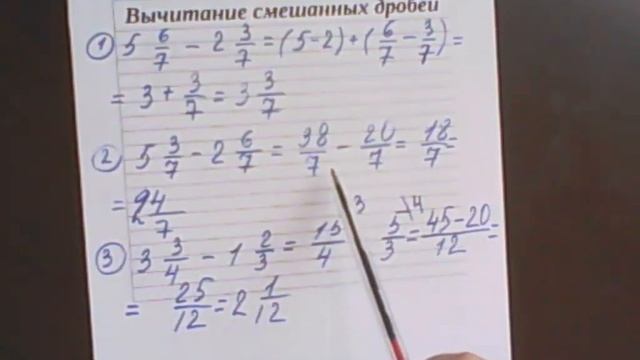 Вычитание смешанных дробей
① 5 6/7 - 2 3/7 = (5-2) + (6/7 - 3/7) =
= 3 + 3/7 = 3 3/7
② 5 3/7 - 2 6/7 = 38/7 - 20/7 = 18/7 =
= 2 4/7
③ 3 3/4 - 1 2/3 = 15/4 3 5/3 \4 = 45-20/12 =
= 25/12 = 2 1/12